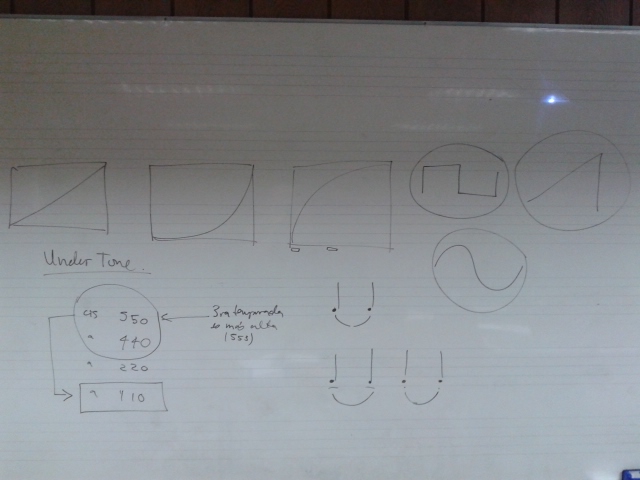 Under Tone.
cis 550
" 440
" 220
" 110
3ra temporada
es más alta
(553)